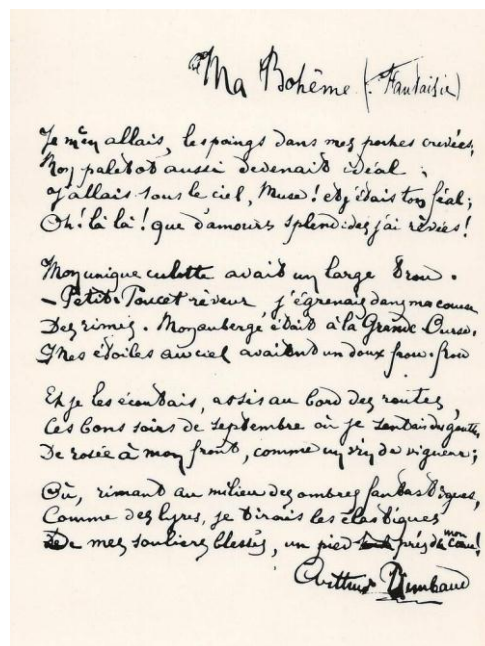 Ma Bohême (Fantaisie)
Je m'en allais, les poings dans mes poches crevées;
Mon paletot aussi devenait idéal;
J'allais sous le ciel, Muse! et j'étais ton féal;
Oh! là là! que d'amours splendides j'ai rêvées!
Mon unique culotte avait un large trou.
– Petit-Poucet rêveur, j'égrenais dans ma course
Des rimes. Mon auberge était à la Grande-Ourse.
– Mes étoiles au ciel avaient un doux frou-frou
Et je les écoutais, assis au bord des routes,
Ces bons soirs de septembre où je sentais des gouttes
De rosée à mon front, comme un vin de vigueur;
Où, rimant au milieu des ombres fantastiques,
Comme des lyres, je tirais les élastiques
De mes souliers blessés, un pied près de mon cœur!
Arthur Rimbaud